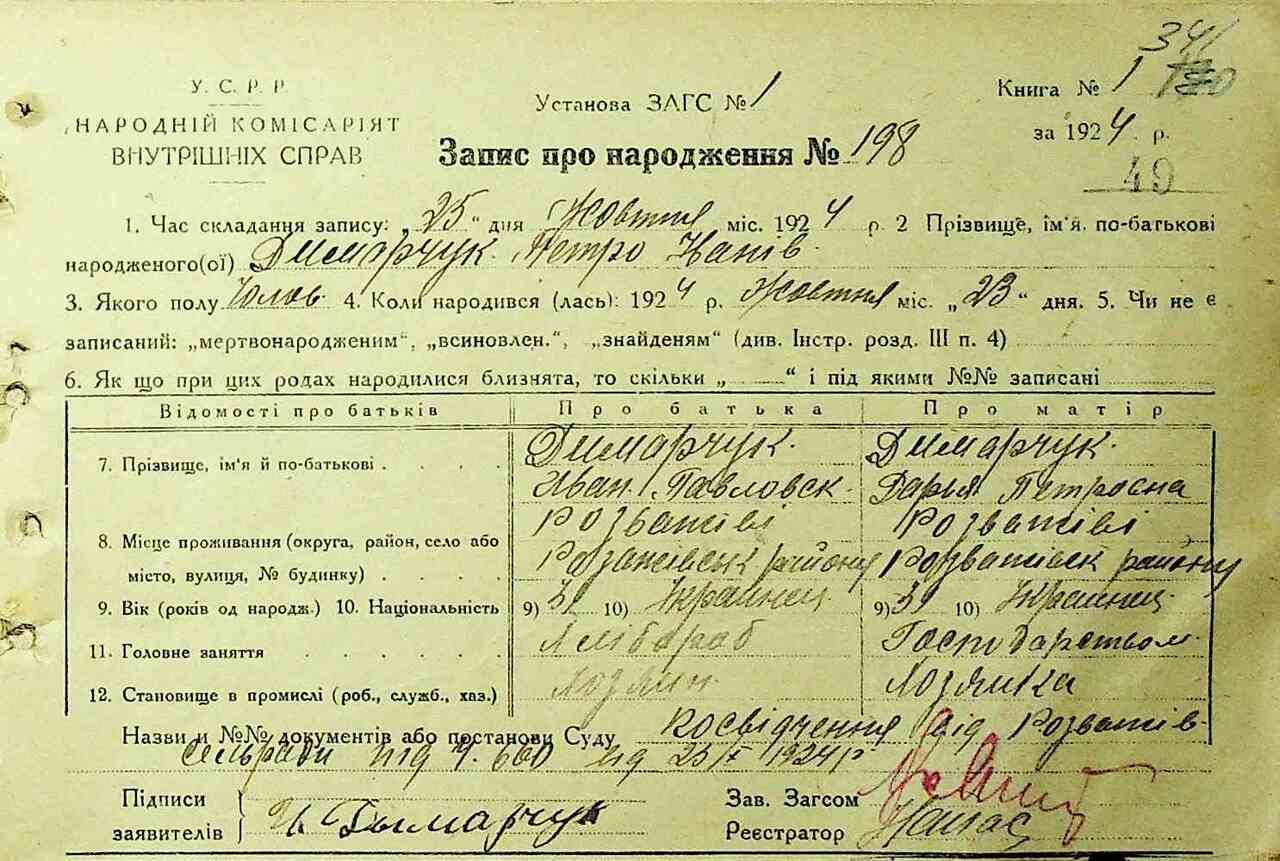 341
У. С. Р. Р
НАРОДНІЙ КОМІСАРІЯТ
ВНУТРІШНІХ СПРАВ
Установа ЗАГС № 1
Книга № 1
за 1924 р.
49
Запис про народження № 198
1. Час складання запису: „25“ дня Жовтня міс. 1924 р. 2 Прізвище, ім'я, по-батькові
народженого(ої) Димарчук Петро
3. Якого полу Чолов. 4. Коли народився (лась): 1924 р. Жовтня міс. „23“ дня. 5. Чи не є
записаний: „мертвонародженим“, „всиновлен.“, „знайденям“ (див. Інстр. розд. III п. 4)
6. Як що при цих родах народилися близнята, то скільки „ “ і під якими №№ записані
Відомості про батьків Про батька Про матір
7. Прізвище, ім'я й по-батькові Димарчук Димарчук
Иван Павловск. Дарья Петровна
8. Місце проживання (округа, район, село або Розважіві Розважіві
місто, вулиця, № будинку) району Розважівск району
9. Вік (років од народж.) 10. Національність 9) 10) Украинец 9) 10) Украинец
11. Головне заняття Хлібороб Господарством
12. Становище в промислі (роб., служб., хаз.) Хозяин Хозяика
Назви и №№ документів або постанови Суду Посвідчення від Розважів
сельради під Ч. 660 від 25/X 1924 р
Підписи
заявителів Дымарчук
Зав. Загсом
Реєстратор